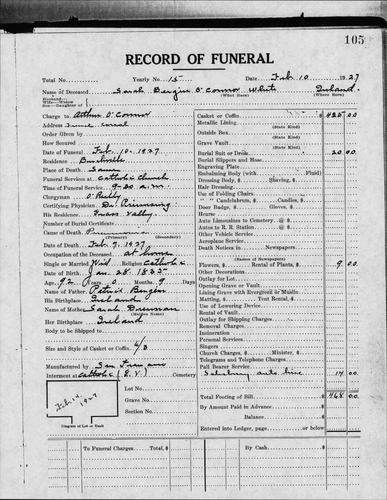 105
RECORD OF FUNERAL
Total No. Yearly No. 15 Date Feb. 10 1927
Name of Deceased Sarah Bergin O'Connor White Ireland
Husband— Wife—Widow Son—Daughter of (What Born) (Where Born)
Charge to Arthur O'Connor
Address
Order Given by
How Secured
Date of Funeral Feb. 10, 1927
Residence
Place of Death Same
Funeral Services at Catholic Church
Time of Funeral Service 9-30 a.m.
Clergyman O'Reilly
Certifying Physician Dr.
His Residence Grass Valley
Number of Burial Certificate
Cause of Death
(Primary) (Secondary)
Date of Death Feb. 7, 1927
Occupation of the Deceased at home
Single or Married Wid Religion Catholic
Date of Birth Jan. 28, 1835
Age 92 Years 0 Months 9 Days
Name of Father Patrick Bergin
His Birthplace Ireland
Name of Mother Sarah Brennan
(Maiden Name)
Her Birthplace Ireland
Body to be Shipped to
Size and Style of Casket or Coffin 6/3
Manufactured by San Francisco
Interment at Catholic Cemetery
Lot No.
Grave No.
Section No.
Feb. 14, 1927
Diagram of Lot or Vault
Casket or Coffin $425 00
Metallic Lining
(State Kind)
Outside Box
(State Kind)
Grave Vault
(State Kind)
Burial Suit or Dress 20 00
Burial Slippers and Hose
Engraving Plate
Embalming Body (with Fluid)
Dressing Body, $ Shaving, $
Hair Dressing
Use of Folding Chairs
" " Candelabrum, $ Candles, $
Door Badge, $ Gloves, $
Hearse
Auto Limousines to Cemetery @ $
Autos to R. R. Station @ $
Other Vehicle Service
Aeroplane Service
Death Notices in Newspapers
(Names of Newspapers)
Flowers, $ Rental of Plants, $ 9 00
Other Decorations
Outlay for Lot
Opening Grave or Vault
Lining Grave with Evergreen or Muslin
Matting, $ Tent Rental, $
Use of Lowering Device
Rental of Vault
Outlay for Shipping Charges
Removal Charges
Incineration
Personal Services
Singers
Church Charges, $ Minister, $
Telegrams and Telephone Charges
Pall Bearer Service
auto 14 00
Total Footing of Bill $468 00
By Amount Paid in Advance $
Balance $
Entered into Ledger, page or below
To Funeral Charges Total $ By Cash $